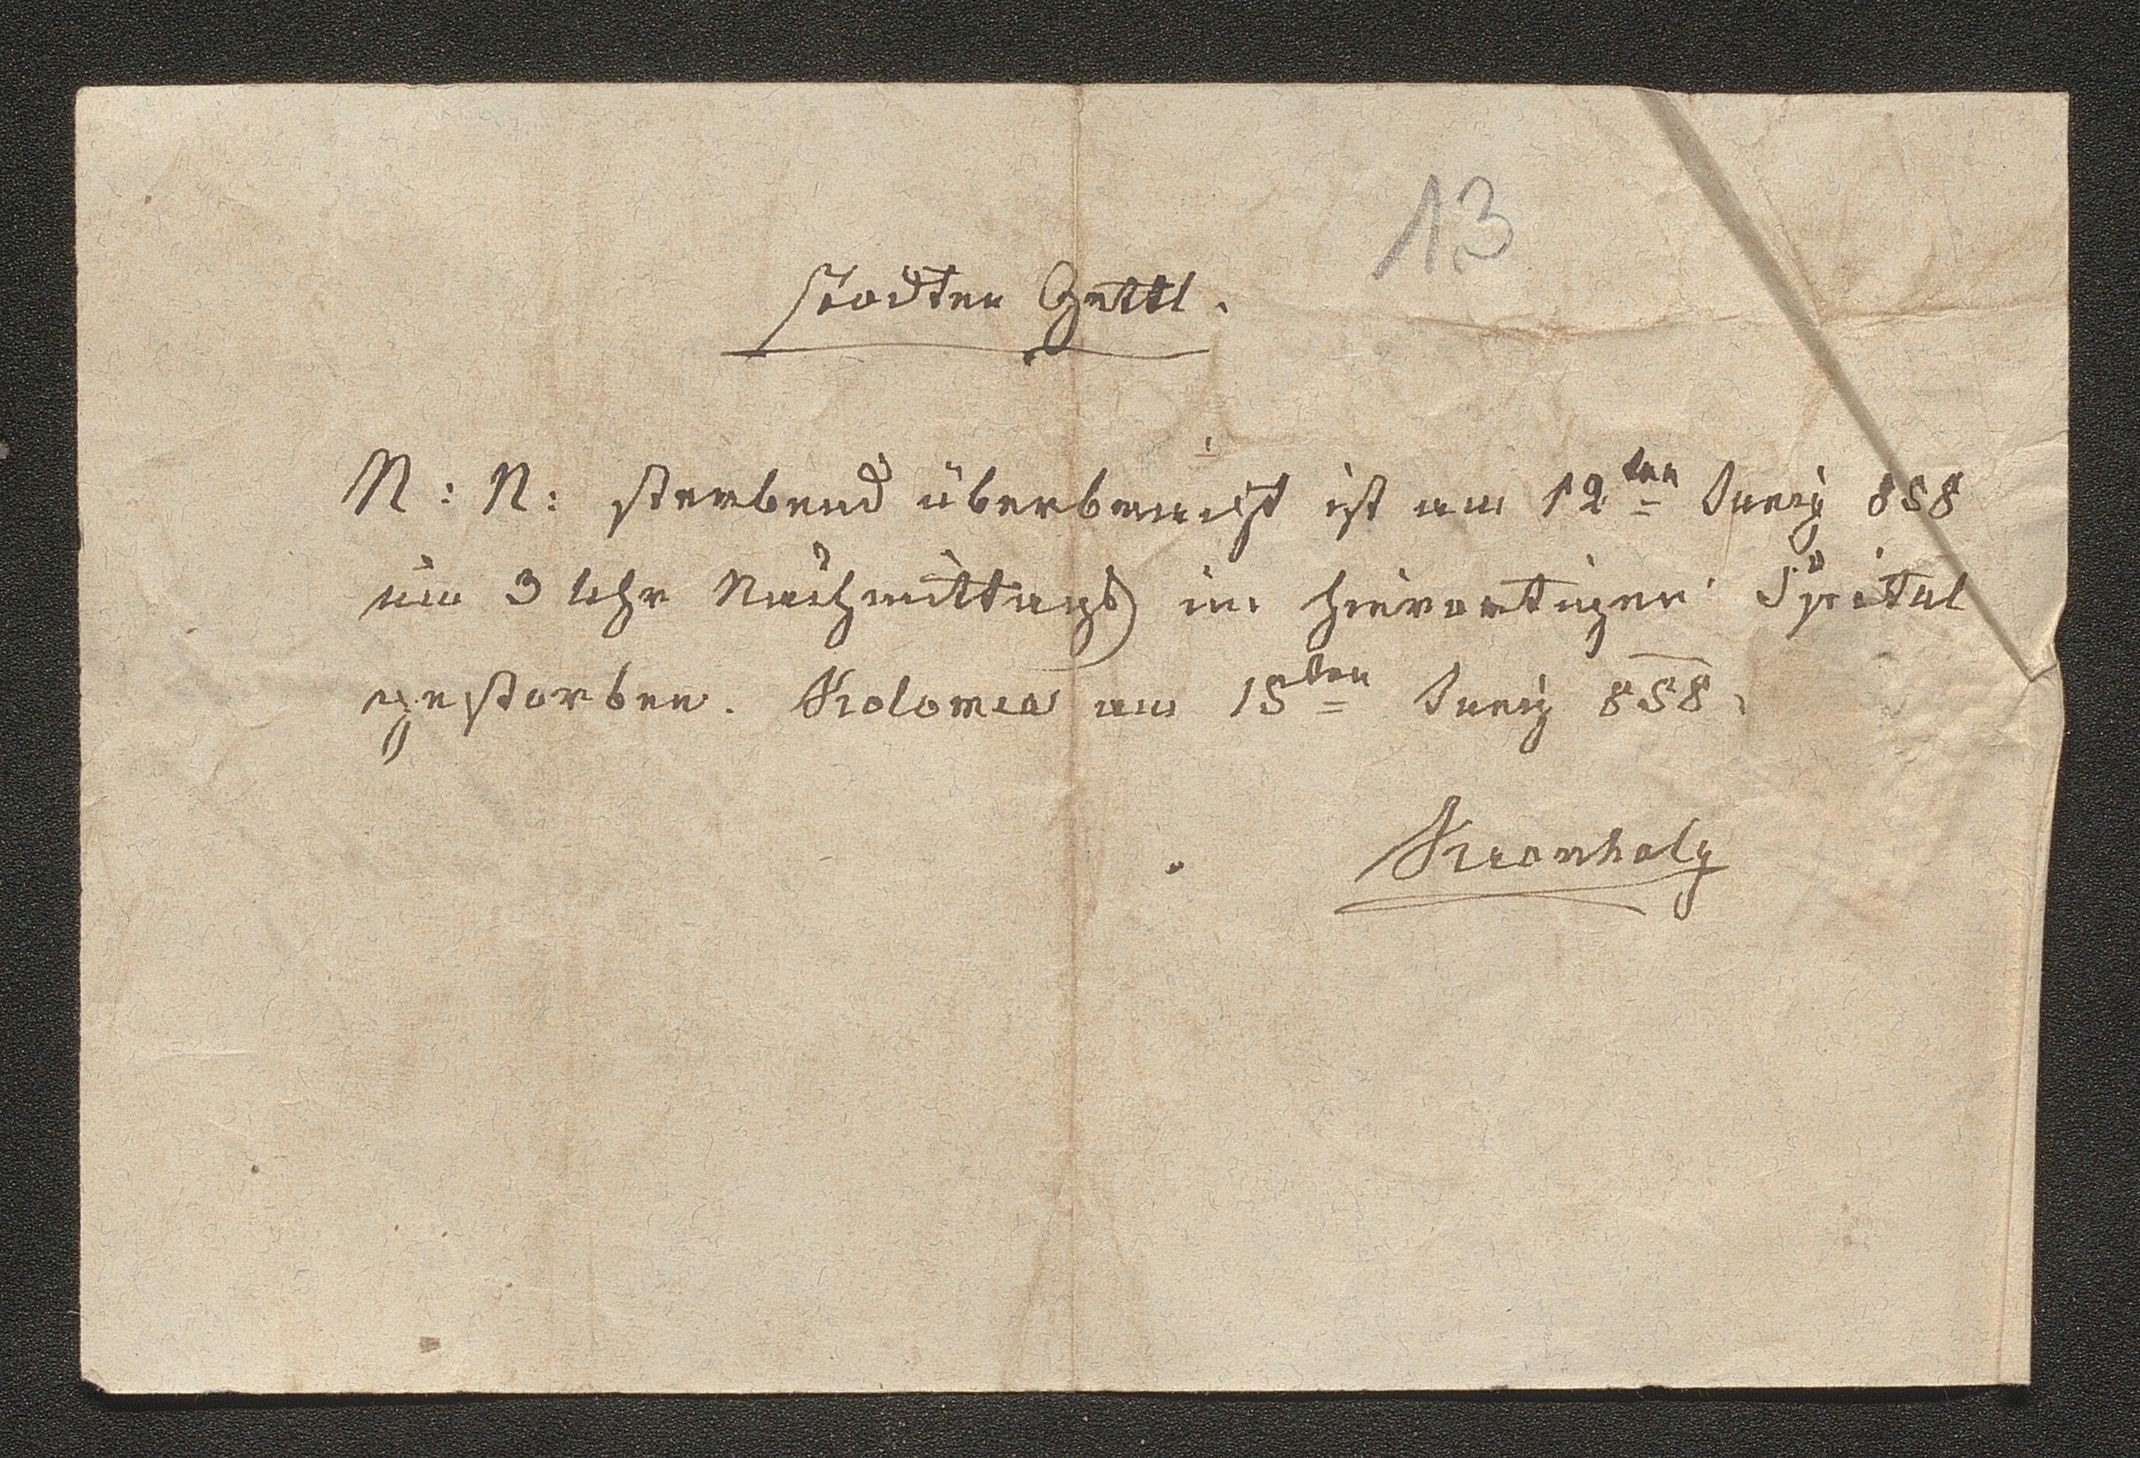 13
Todten Zettl.
N: N: sterbend überbracht ist am 12ten Juny 858
um 3 Uhr Nachmittags im hierortigen Spital
gestorben. Kolomea am 15ten Juny 858.
Kronholz